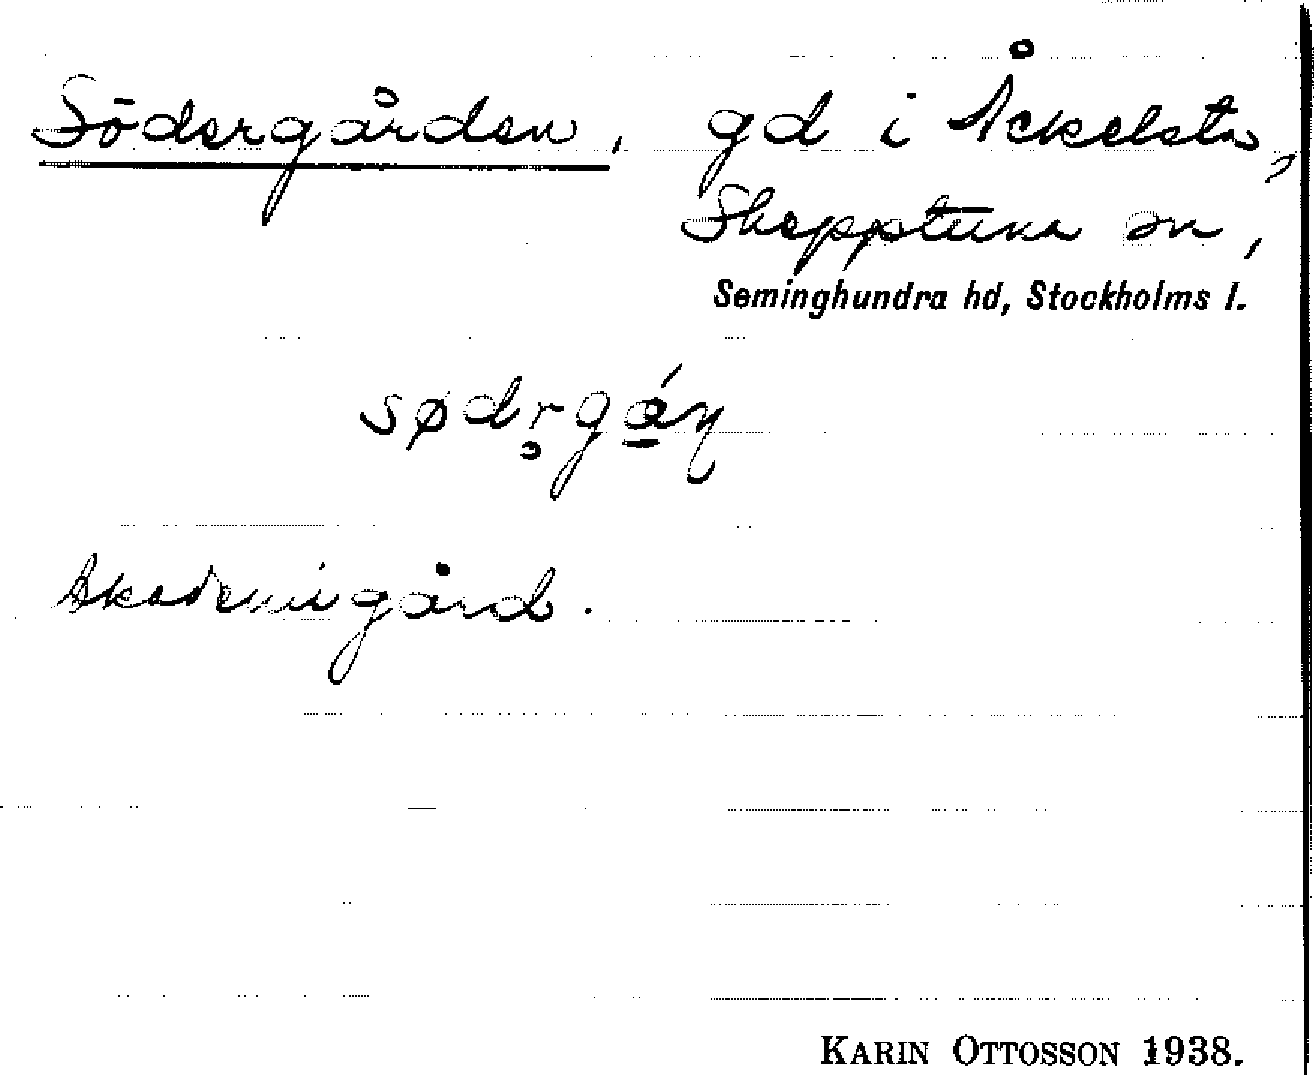 Södergården, gd i Åckelsta,
Skepptuna sn,
Seminghundra hd, Stockholms l.
sødr̥gá̱ṇ
Akademigård.
KARIN OTTOSSON 1938.